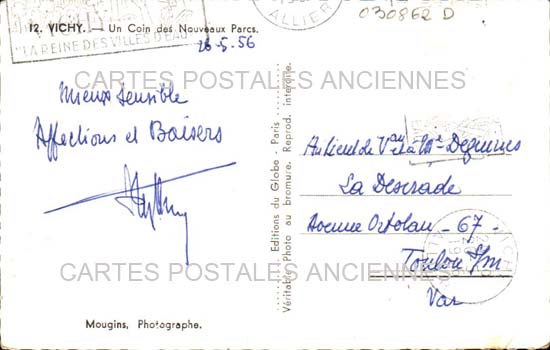 12. VICHY. — Un Coin des Nouveaux Parcs.
"LA REINE DES VILLES D'EAU"
ALLIER
030862 D
26-5-56
CARTES POSTALES ANCIENNES
Mieux sensible
Affections et Baisers
CARTES POSTALES ANCIENNES
Mougins, Photographe.
Editions du Globe - Paris
Véritable Photo au bromure. Reprod. interdite.
La Deserade
Avenue Ortolan - 67 -
Toulon s/m
Var